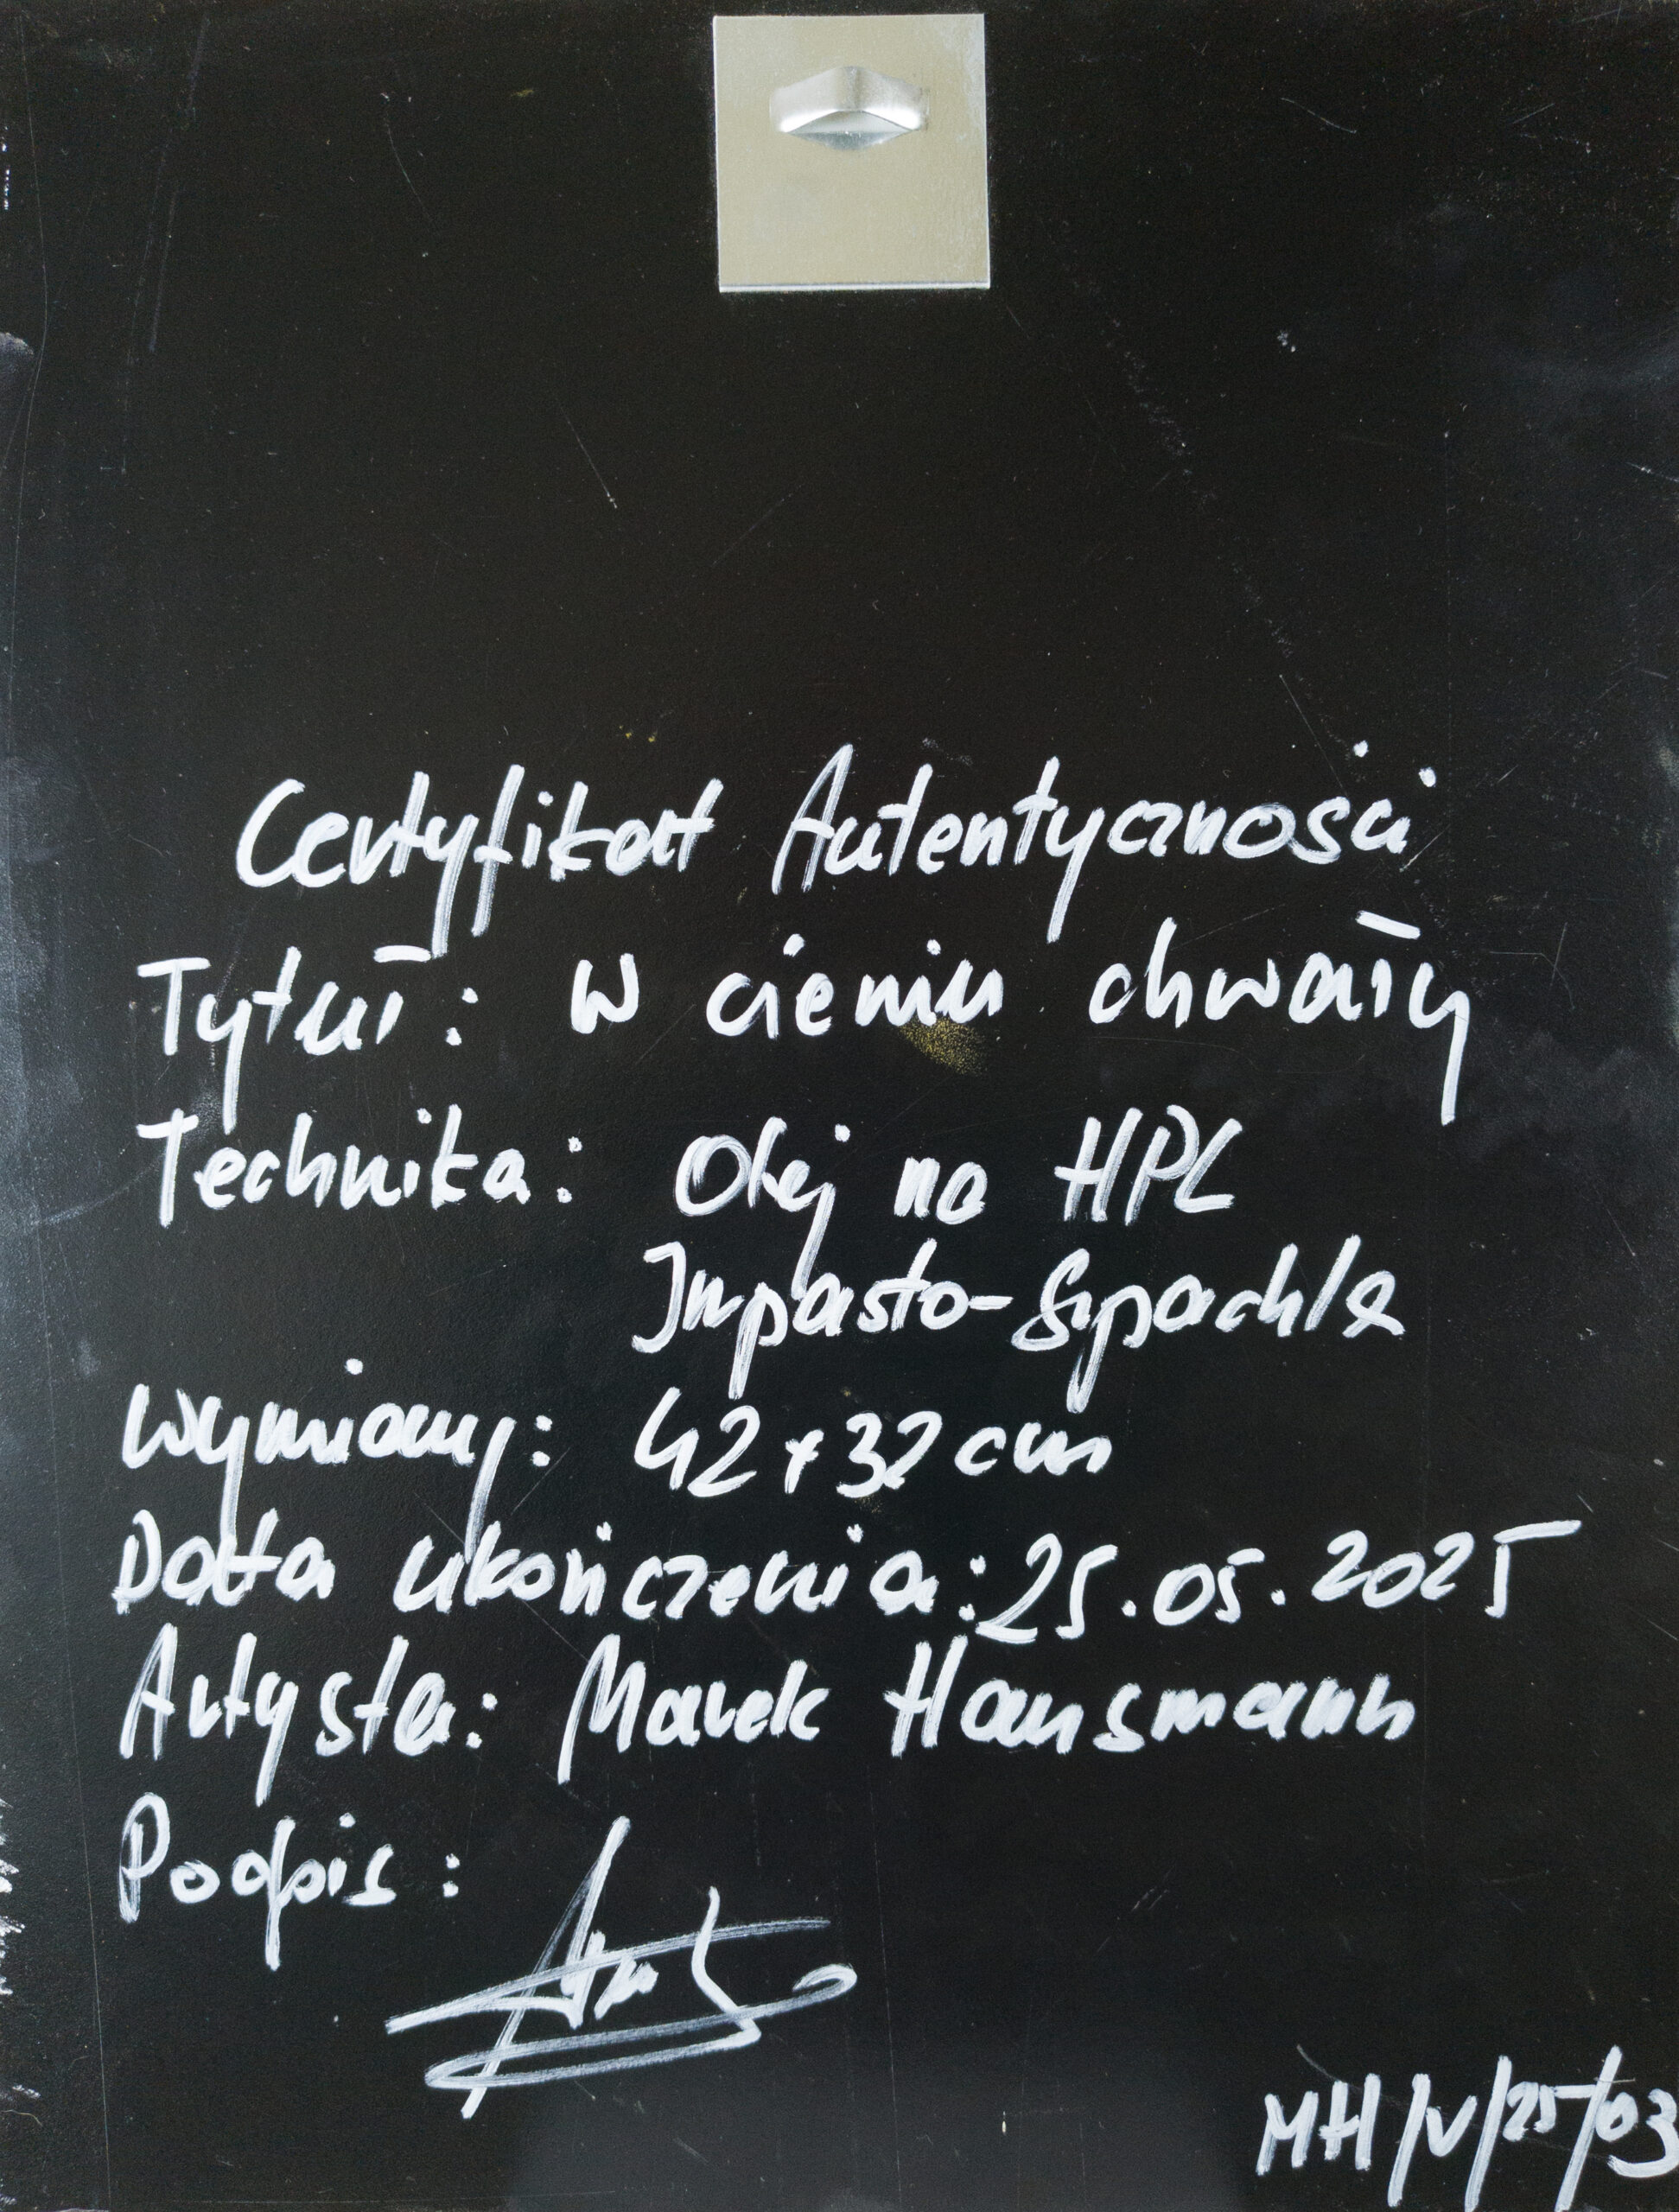 Certyfikat Autentyczności
Tytuł: W cieniu chwały
Technika: Olej na HPL
Impasto-Szpachla
Wymiary: 42x32 cm
Data ukończenia: 25.05.2025
Artysta: Marek Hansmann
Podpis:
MH/V/25/03